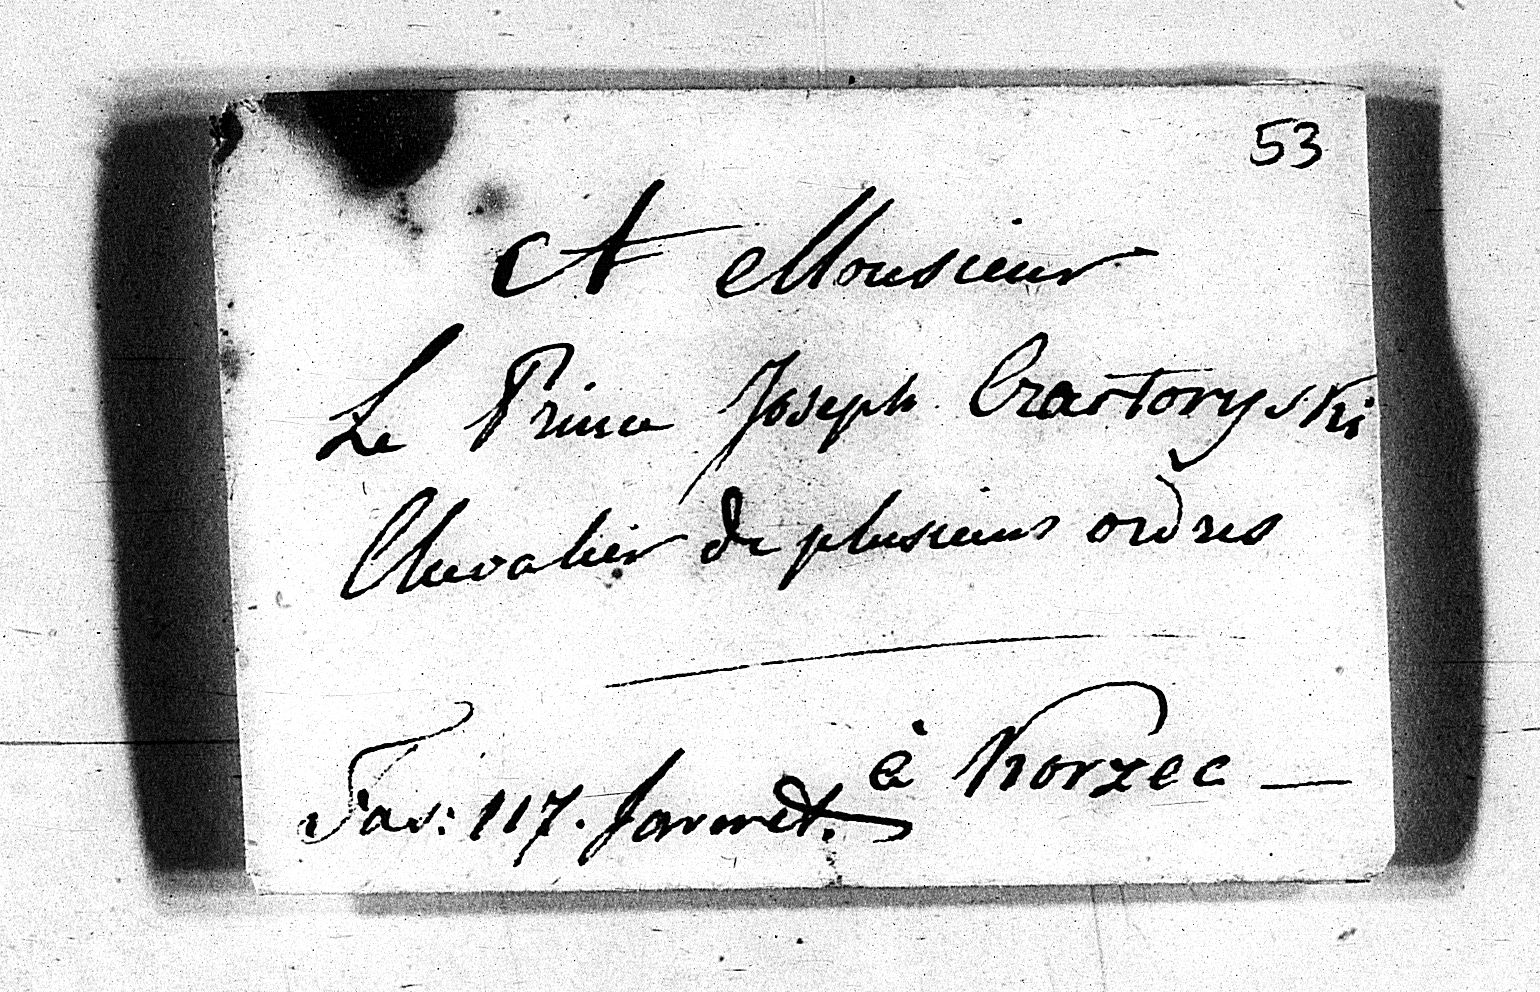 53
A Monsieur
Le Prince Joseph Czartoryski
Chevalier de plusieurs ordres
à Korzec —
117.